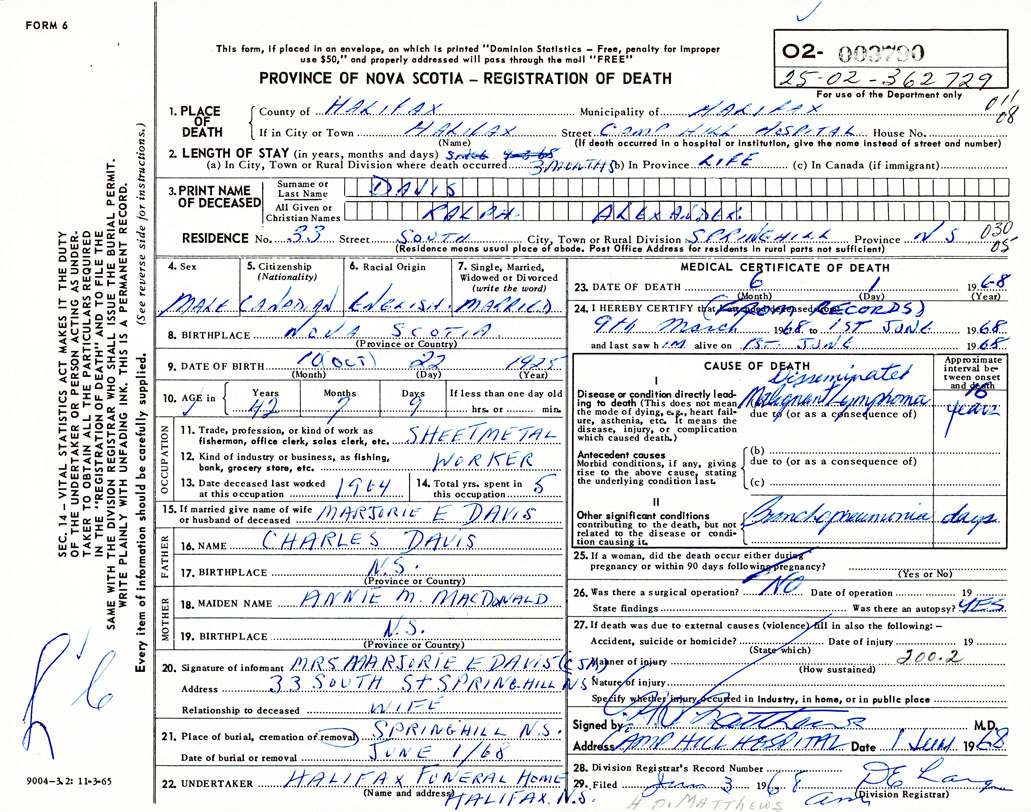 FORM 6
This form, if placed in an envelope, on which is printed "Dominion Statistics – Free, penalty for improper
use $50," and properly addressed will pass through the mail "FREE"
PROVINCE OF NOVA SCOTIA – REGISTRATION OF DEATH
02- 003790
25-02-362729
For use of the Department only
011
08
1. PLACE OF DEATH
County of HALIFAX Municipality of HALIFAX
If in City or Town HALIFAX Street CAMP HILL HOSPITAL House No.
(Name) (If death occurred in a hospital or institution, give the name instead of street and number)
2. LENGTH OF STAY (in years, months and days)
(a) In City, Town or Rural Division where death occurred 3 MONTHS (b) In Province LIFE (c) In Canada (if immigrant)
3. PRINT NAME OF DECEASED
Surname or Last Name DAVIS
All Given or Christian Names RALPH ALEXANDER
RESIDENCE No. 33 Street SOUTH City, Town or Rural Division SPRINGHILL Province N S
(Residence means usual place of abode. Post Office Address for residents in rural parts not sufficient)
030
05
4. Sex MALE
5. Citizenship (Nationality) CANADIAN
6. Racial Origin ENGLISH
7. Single, Married, Widowed or Divorced (write the word) MARRIED
8. BIRTHPLACE NOVA SCOTIA
(Province or Country)
9. DATE OF BIRTH 10 (OCT) 22 1925
(Month) (Day) (Year)
10. AGE in Years 42 Months 7 Days 9 If less than one day old hrs. or min.
OCCUPATION
11. Trade, profession, or kind of work as fisherman, office clerk, sales clerk, etc. SHEETMETAL
12. Kind of industry or business, as fishing, bank, grocery store, etc. WORKER
13. Date deceased last worked at this occupation 1964
14. Total yrs. spent in this occupation 5
15. If married give name of wife or husband of deceased MARJORIE E DAVIS
FATHER
16. NAME CHARLES DAVIS
17. BIRTHPLACE N.S.
(Province or Country)
MOTHER
18. MAIDEN NAME ANNIE M. MACDONALD
19. BIRTHPLACE N.S.
(Province or Country)
20. Signature of informant MRS MARJORIE E DAVIS
Address 33 SOUTH ST SPRINGHILL NS
Relationship to deceased WIFE
21. Place of burial, cremation or removal SPRINGHILL N.S.
Date of burial or removal JUNE 1/68
22. UNDERTAKER HALIFAX FUNERAL HOME
(Name and address) HALIFAX. N.S.
MEDICAL CERTIFICATE OF DEATH
23. DATE OF DEATH 6 1 1968
(Month) (Day) (Year)
24. I HEREBY CERTIFY that (FROM RECORDS)
9th March 1968 to 1ST JUNE 1968
and last saw him alive on 1ST JUNE 1968
CAUSE OF DEATH
Approximate interval between onset and death
I
Disease or condition directly leading to death (This does not mean the mode of dying, e.g., heart failure, asthenia, etc. It means the disease, injury, or complication which caused death.)
Disseminated
Malignant Lymphoma
due to (or as a consequence of)
years
Antecedent causes
Morbid conditions, if any, giving rise to the above cause, stating the underlying condition last.
(b)
due to (or as a consequence of)
(c)
II
Other significant conditions contributing to the death, but not related to the disease or condition causing it.
Bronchopneumonia days
25. If a woman, did the death occur either during pregnancy or within 90 days following pregnancy?
(Yes or No)
26. Was there a surgical operation? NO Date of operation 19
State findings Was there an autopsy? YES
27. If death was due to external causes (violence) fill in also the following: –
Accident, suicide or homicide? Date of injury 19
(State which)
Manner of injury 200.2
(How sustained)
Nature of injury
Specify whether injury occurred in Industry, in home, or in public place
Signed by Matthews M.D.
Address CAMP HILL HOSPITAL Date 1 June 1968
28. Division Registrar's Record Number
29. Filed June 3 1968
(Division Registrar)
H D. MATTHEWS
SEC. 14 – VITAL STATISTICS ACT MAKES IT THE DUTY
OF THE UNDERTAKER OR PERSON ACTING AS UNDER-
TAKER TO OBTAIN ALL THE PARTICULARS REQUIRED
IN THE "REGISTRATION OF DEATH" AND TO FILE THE
SAME WITH THE DIVISION REGISTRAR WHO SHALL ISSUE THE BURIAL PERMIT.
WRITE PLAINLY WITH UNFADING INK. THIS IS A PERMANENT RECORD.
Every item of information should be carefully supplied. (See reverse side for instructions.)
9004–3.2: 11-3-65